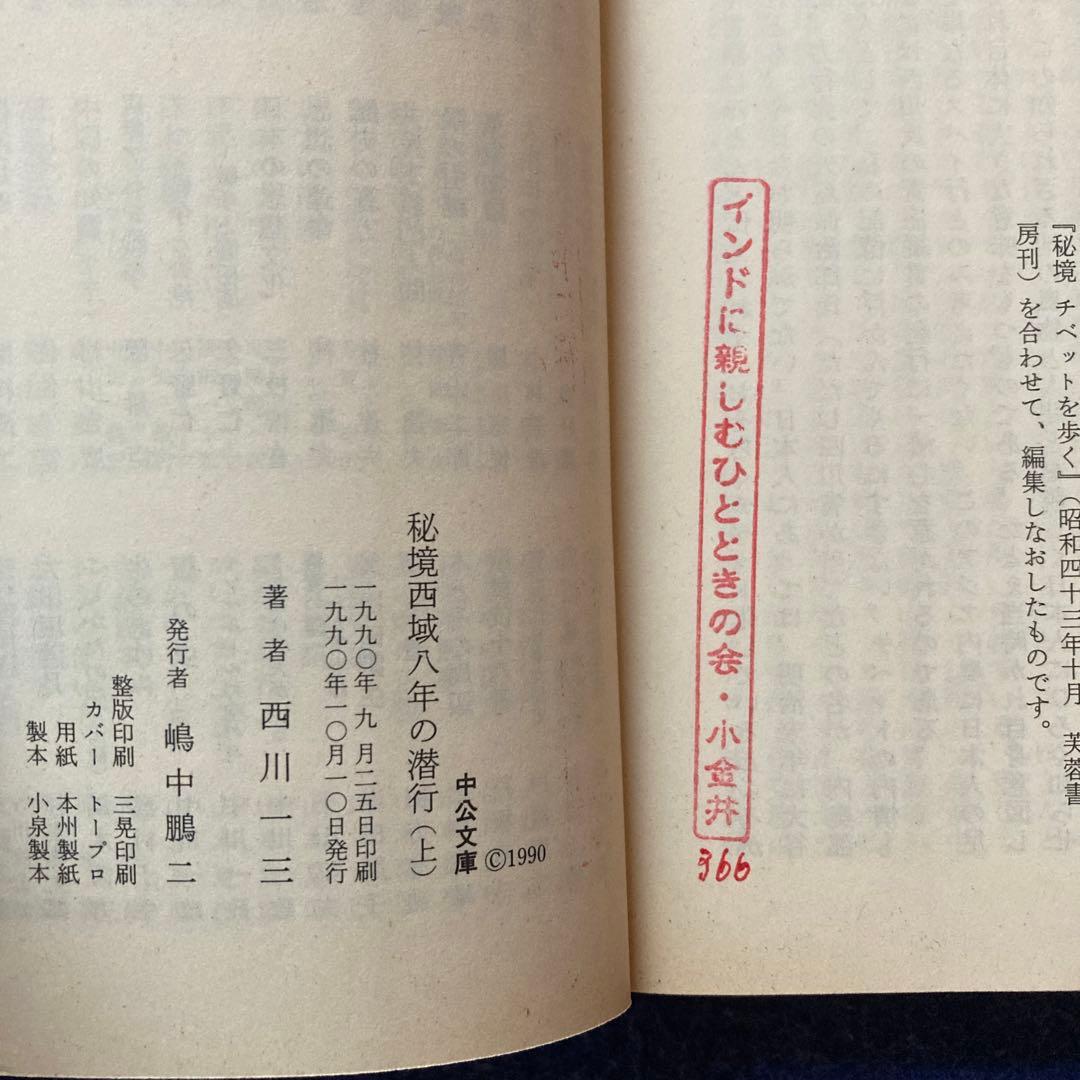 『秘境 チベットを歩く』(昭和四十三年十月 芙蓉書
房刊)を合わせて、編集しなおしたものです。
インドに親しむひとときの会・小金井
366
中公文庫
©1990
秘境西域八年の潜行(上)
一九九〇年 九 月二五日印刷
一九九〇年一〇月一〇日発行
著者 西川一三
発行者 嶋中鵬二
整版印刷 三晃印刷
カバー トープロ
用紙 本州製紙
製本 小泉製本